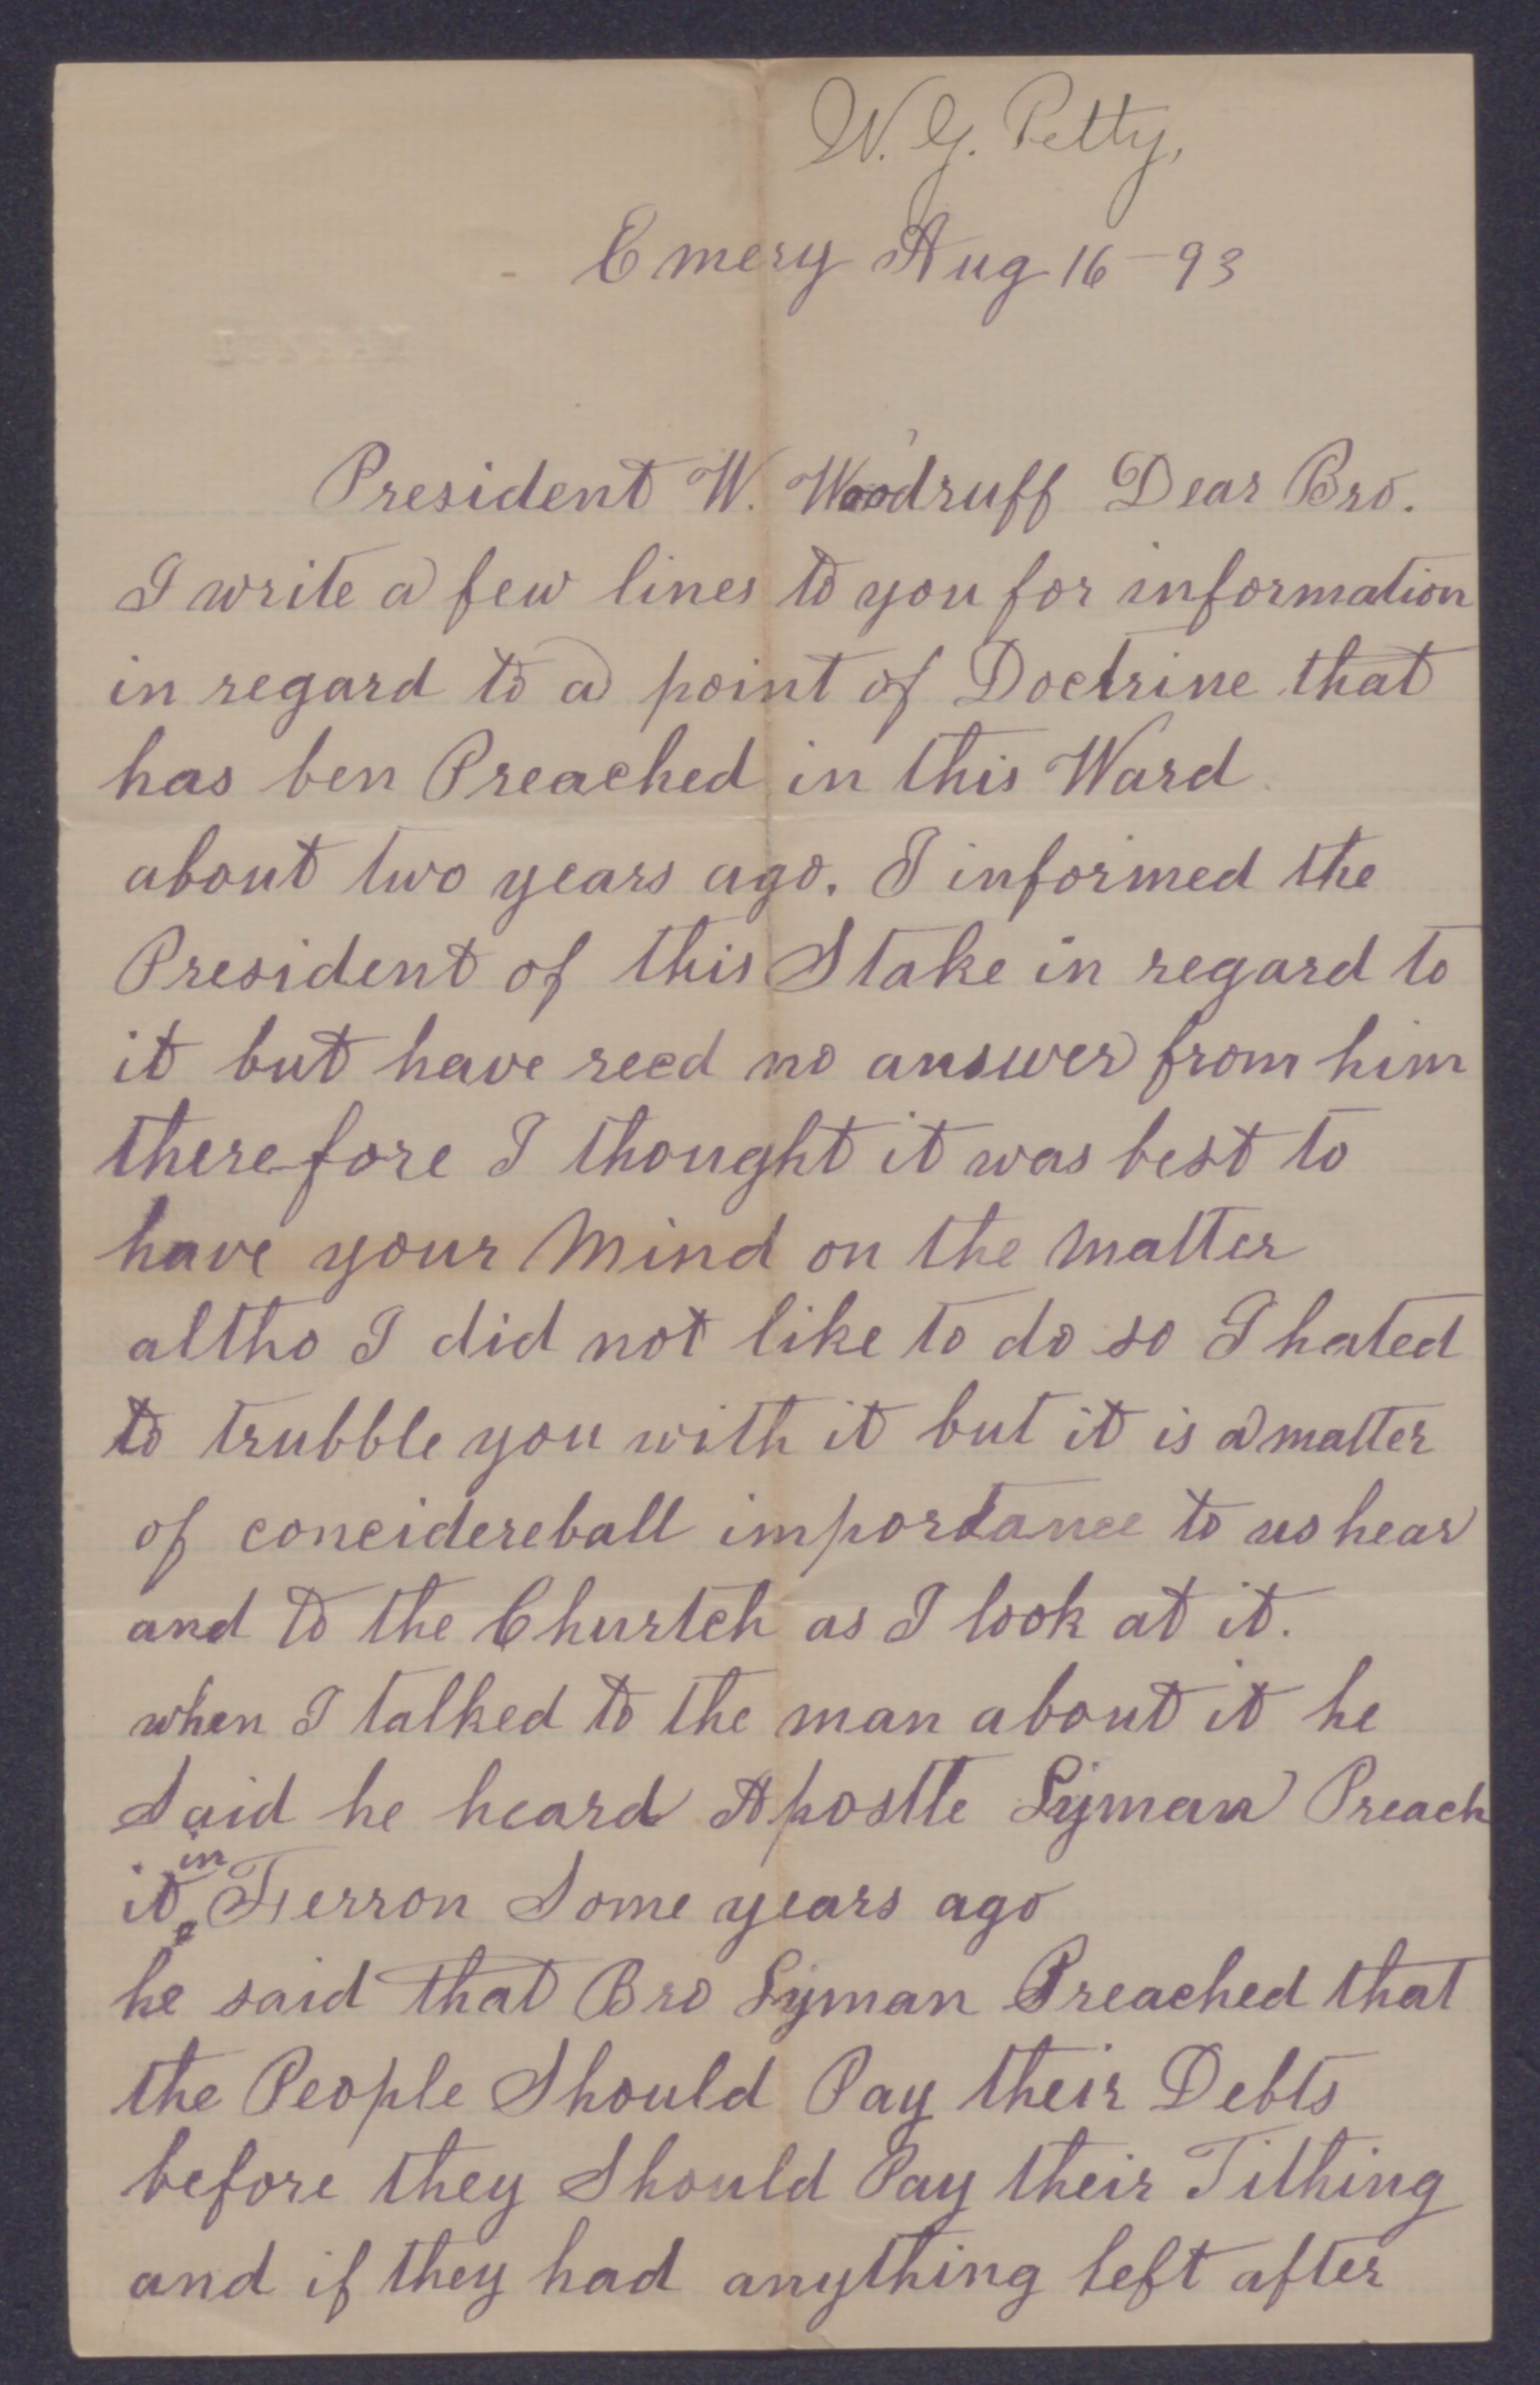 W. G. Petty,
Emery Aug 16 - 93
President W. Woodruff Dear Bro.
I write a few lines to you for information
in regard to a point of Doctrine that
has ben Preached in this Ward
about two years ago. I informed the
President of this Stake in regard to
it but have recd no answer from him
therefore I thought it was best to
have your Mind on the Matter
altho I did not like to do so I hated
to trubble you with it but it is a matter
of concidereball importance to us hear
and to the Churtch as I look at it.
when I talked to the man about it he
Said he heard Apostle Lyman Preach
it in Ferron Some years ago
he said that Bro Lyman Preached that
the People Should Pay their Debts
before they Should Pay their Tithing
and if they had anything left after